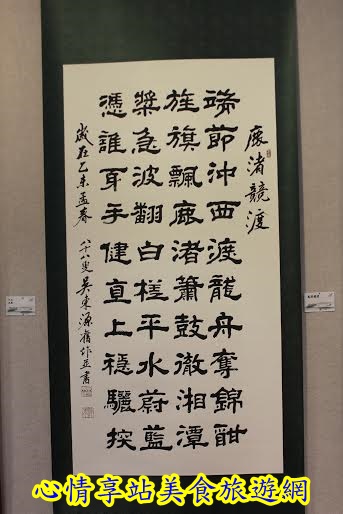 鹿渚競渡
端節沖西渡龍舟奪錦酣
旌旗飄鹿渚簫鼓徹湘潭
槳急波翻白槎平水蔚藍
憑誰身手健直上穩驪探
歲在乙未孟春 八十八叟吳東源舊作並書
心情享站美食旅遊網